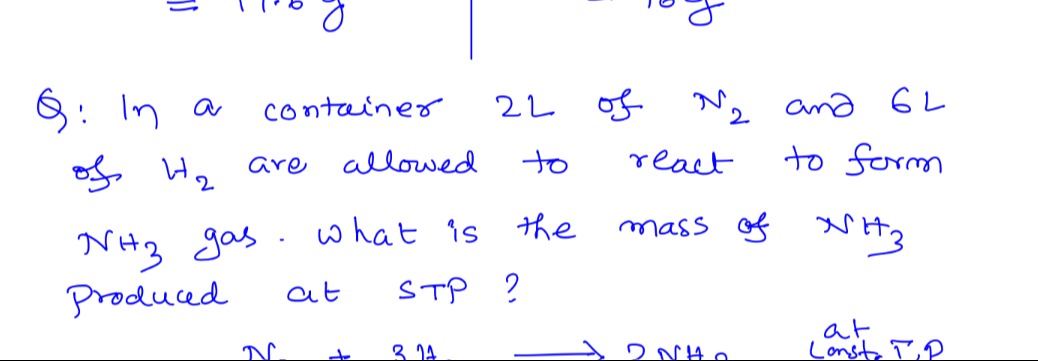 Q: In a container 2L of N₂ and 6L
of H₂ are allowed to react to form
NH₃ gas. what is the mass of NH₃
Produced at STP ?
at
N + 3H → 2NH₃ Const. T, P